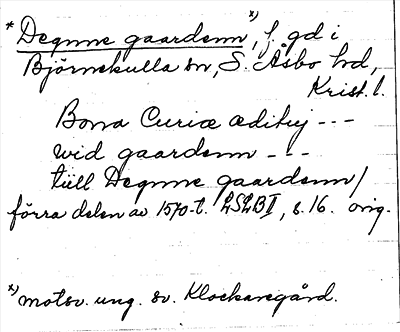 * Degnne gaardenn *), f. gd i
Björnekulla sn, S. Åsbo hd,
Krist. l.
Bona Curiæ ædituj ---
wid gaardenn ---
tiill Degnne gaardenn/
förra delen av 1570-t. LSLB II, s. 16. orig.
*) motsv. ung. sv. Klockaregård.